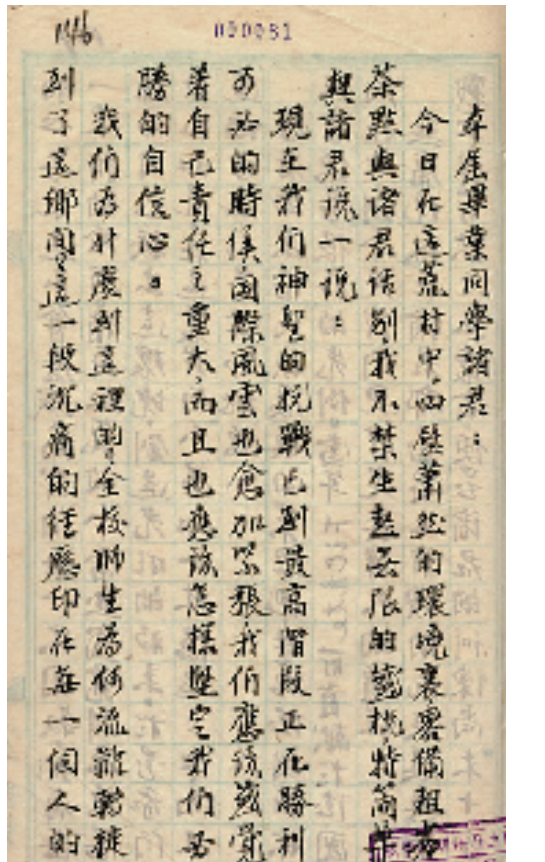 146
000081
本屆畢業同學諸君：
今日在這荒村中，四壁蕭然的環境裏畧備粗
茶點與諸君話別，我不禁生起無限的感慨特簡單
與諸君說一說：
現在我們神聖的抗戰已到最高階段正在勝利
可必的時候國際風雲也愈加緊張，我們應該感覺
着自己責任之重大，而且也應該怎樣堅定我們必
勝的自信心。
我們為什麼到這裡的，全校師生為何流離轉徙
到了這鄉間，這一段沉痛的經歷印在每一個人的